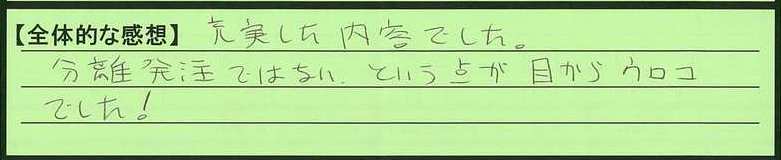 【全体的な感想】 充実した内容でした。
分離発注ではない、という点が目からウロコ
でした！